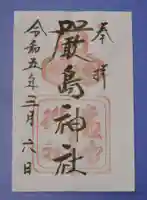 奉拝
嚴島神社
令和五年三月六日